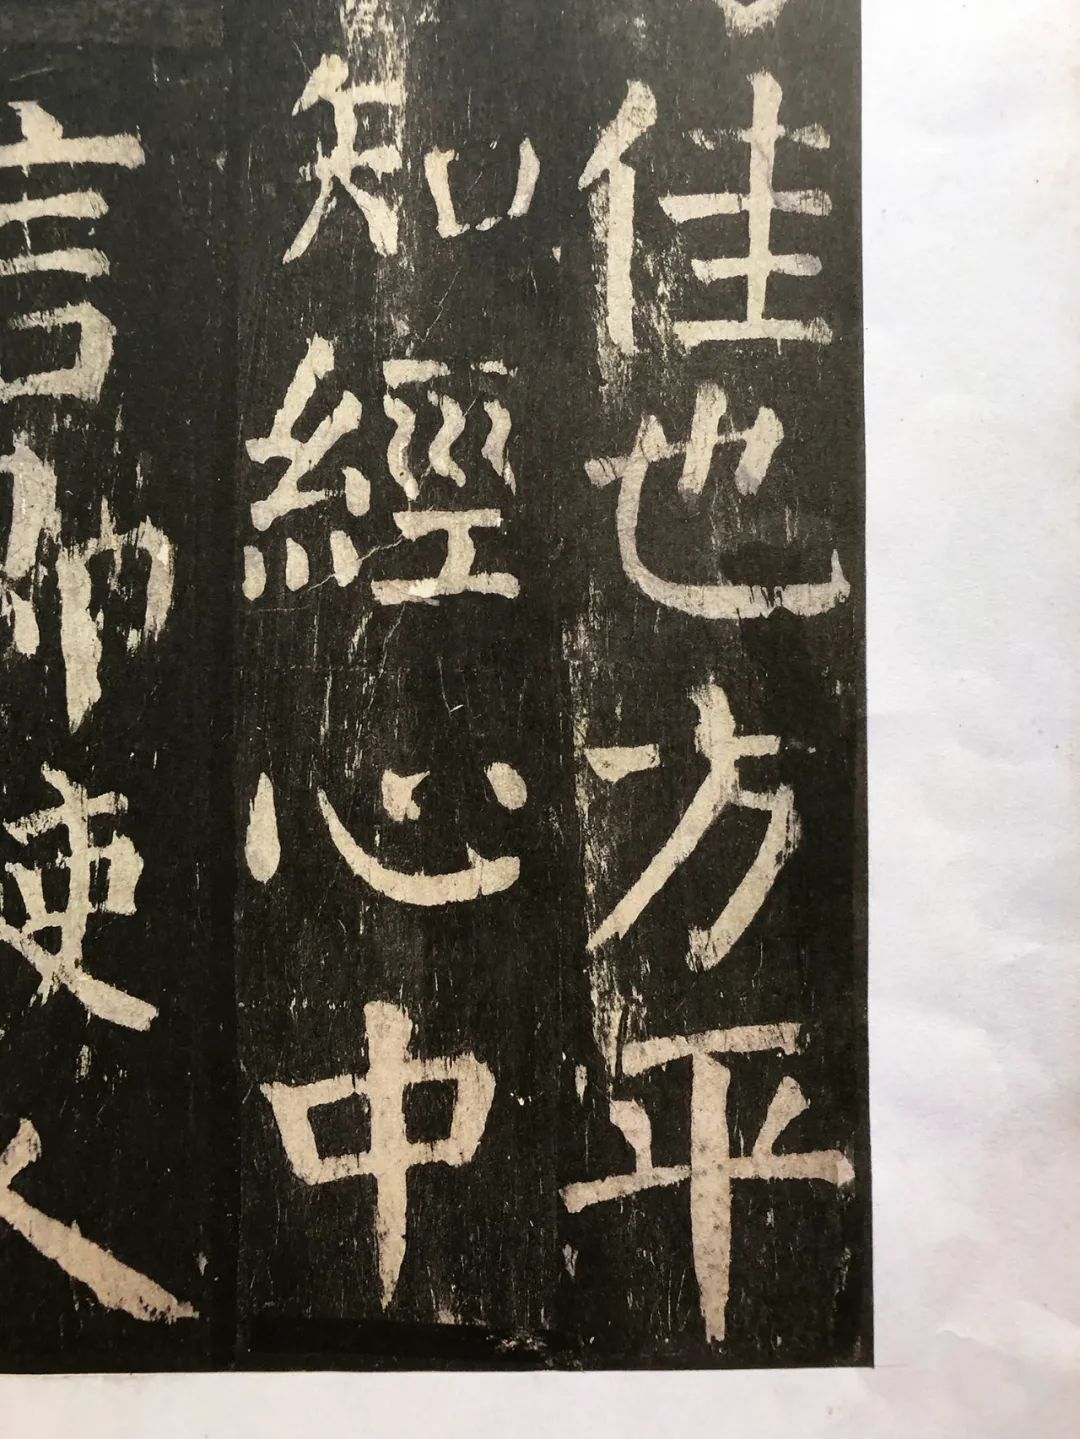 佳也方平
知經心中
言即使人